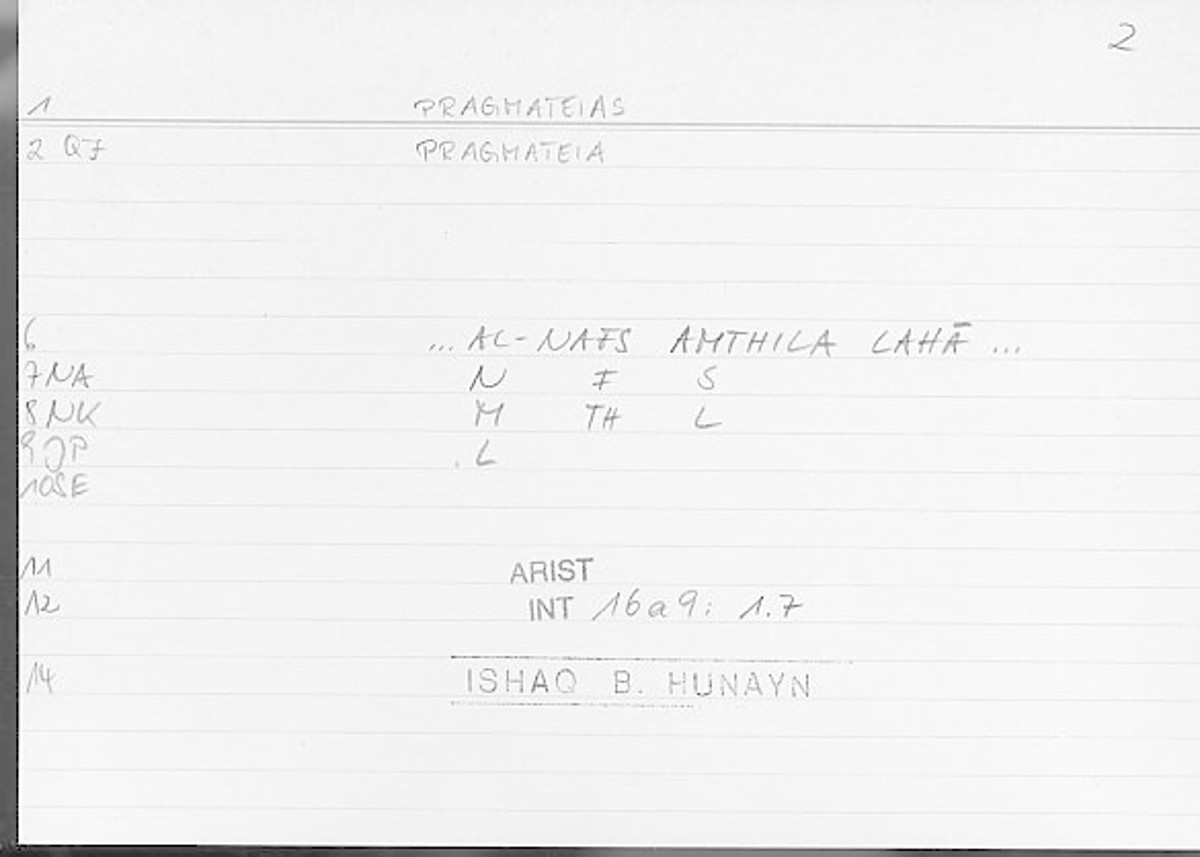 2
1 PRAGMATEIAS
2 Q7 PRAGMATEIA
6 ... AL-NAFS AMTHILA LAHĀ ...
7 NA N F S
8 NK M TH L
9 JP L
10 SE
11 ARIST
12 INT 16a9: 1.7
14 ISHAQ B. HUNAYN